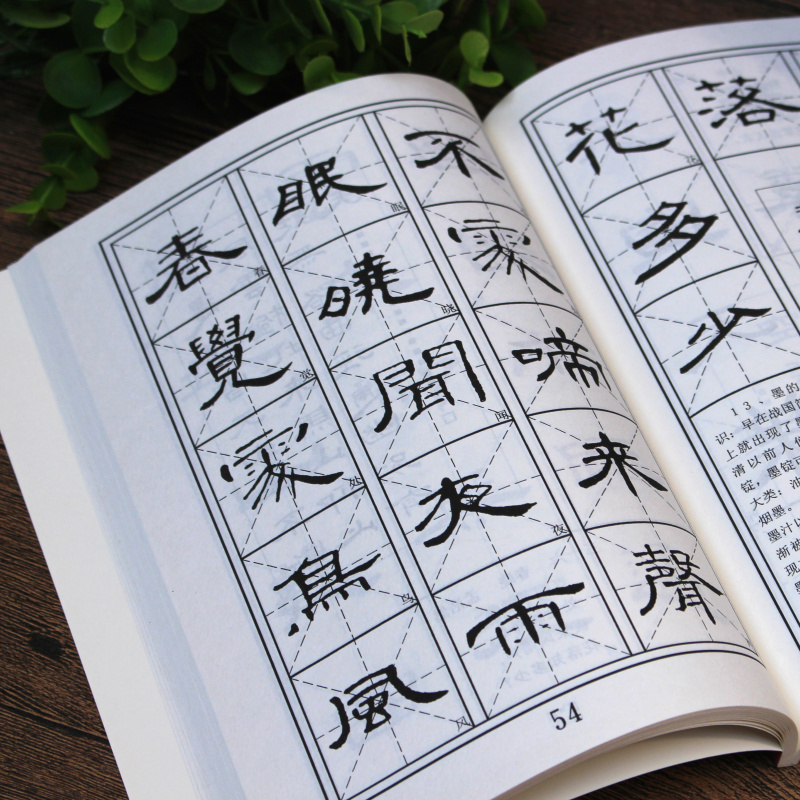 春眠不
覺曉處
晓
處聞啼
处 闻
鳥夜來
鸟 夜
風雨聲
风
54
花落
多
少
13、墨的
识：早在战国
上就出现了
清以前人
锭，墨锭
大类：油
烟墨。
墨汁
渐被
现